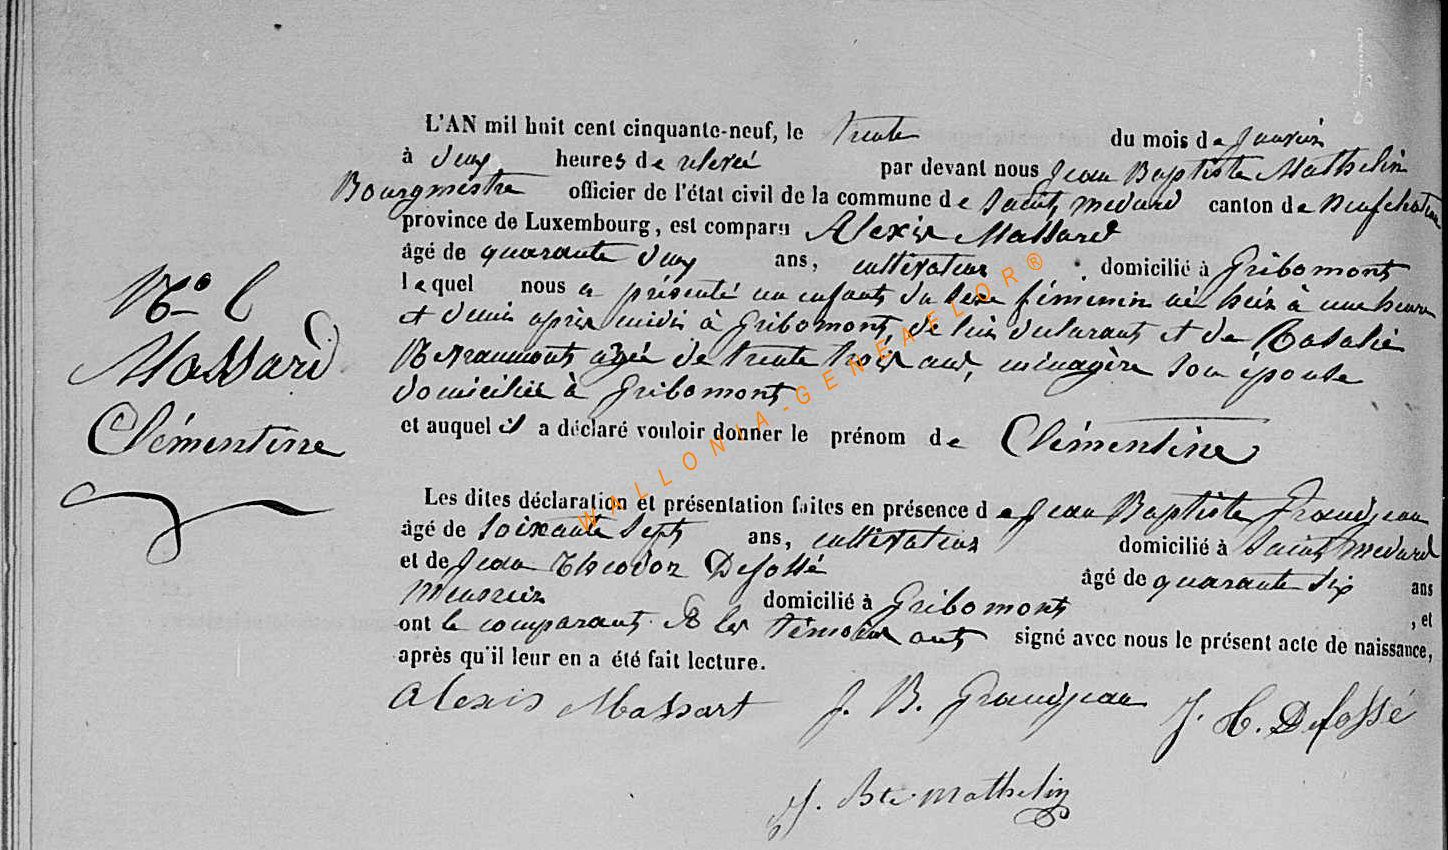 L'AN mil huit cent cinquante-neuf, le trente du mois de Janvier
à deux heures de relevé par devant nous Jean Baptiste Mathelin
Bourgmestre officier de l'état civil de la commune de Saint medard canton de Neufchateau
province de Luxembourg, est comparu Alexis Massard
âgé de quarante deux ans, cultivateur domicilié à Gribomont
lequel nous a présenté un enfant du sexe féminin né hier à une heure
et demie après midi à Gribomont, de lui déclarant et de Rosalie
agée de trente trois ans, ménagère son épouse
domiciliée à Gribomont
et auquel il a déclaré vouloir donner le prénom de Clémentine
Les dites déclaration et présentation faites en présence de Jean Baptiste Grandjean
âgé de soixante sept ans, cultivateur domicilié à Saint medard
et de Jean Theodor Defossé âgé de quarante six ans
menuisier domicilié à Gribomont , et
ont le comparant & les témoins ont signé avec nous le présent acte de naissance,
après qu'il leur en a été fait lecture.
Alexis Massart J. B. Grandjean J. T. Defossé
J. Bte Mathelin
Massard
Clémentine
WALLONIA-GENEAFLOR®